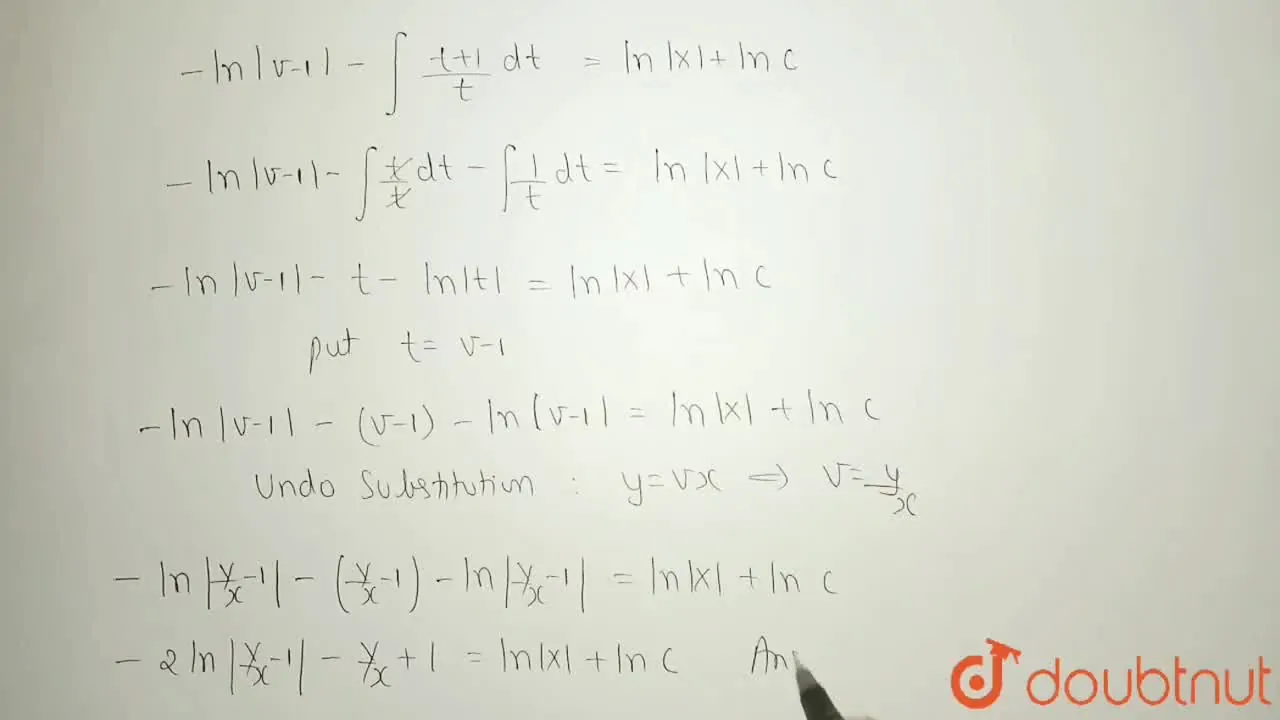 - ln |v-1| - ∫ (t+1)/t dt = ln |x| + ln c
- ln |v-1| - ∫ t/t dt - ∫ 1/t dt = ln |x| + ln c
- ln |v-1| - t - ln |t| = ln |x| + ln c
put t = v-1
- ln |v-1| - (v-1) - ln |v-1| = ln |x| + ln c
Undo Substitution : y = vx ⇒ v = y/x
- ln |y/x - 1| - (y/x - 1) - ln |y/x - 1| = ln |x| + ln c
- 2 ln |y/x - 1| - y/x + 1 = ln |x| + ln c An
doubtnut